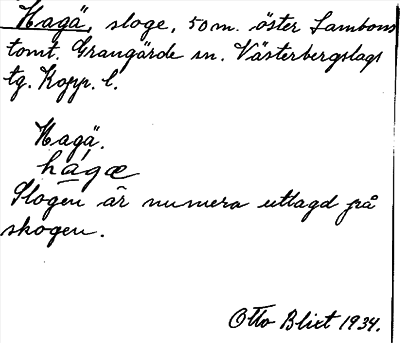 Hagä, sloge, 50 m. öster Lambons
tomt. Grangärde sn. Västerbergslags
tg. Kopp. l.
Hagä.
hagæ
Slogen är numera utlagd på
skogen.
Otto Blixt 1934.